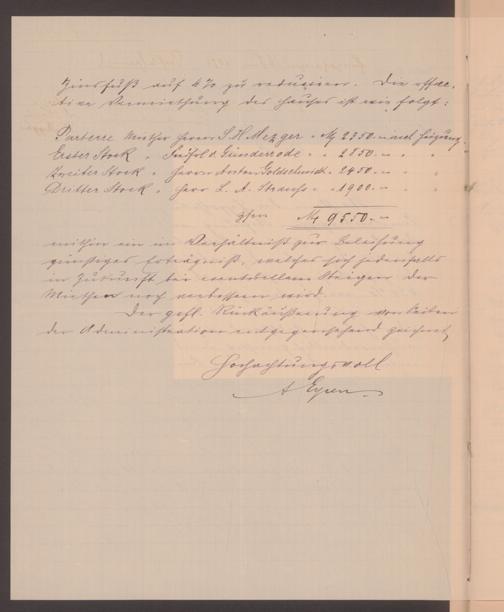 Zinsfuß auf 4% zu reduciren. Die effec-
tive Vermiethung des Hauses ist wie folgt:
Parterre Miether Herr S. H. Mezger M 2350.- incl Heizung.
Erster Stock " Freifrl. v. Günderrode " " 2850.- " "
Zweiter Stock " Herrn Anton Goldschmidt " 2450.- " "
Dritter Stock " Herr L. A. Strauss " 1900.- " "
M 9550.-
mithin ein im Verhältniß zur Beleihung
günstiges Erträgniß, welches sich jedenfalls
in Zukunft bei eventuellem Steigen der
Miethen noch verbessern wird.
Der gefl. Rückäußerung von Seiten
der Administration entgegensehend zeichnet,
Hochachtungsvoll
A Eysen